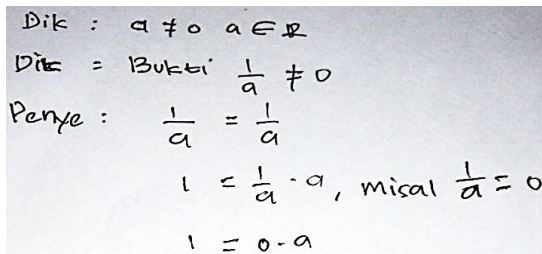 Dik : a ≠ 0 a ∈ R
Dit = Bukti 1/a ≠ 0
Penye : 1/a = 1/a
1 = 1/a · a, misal 1/a = 0
1 = 0 · a